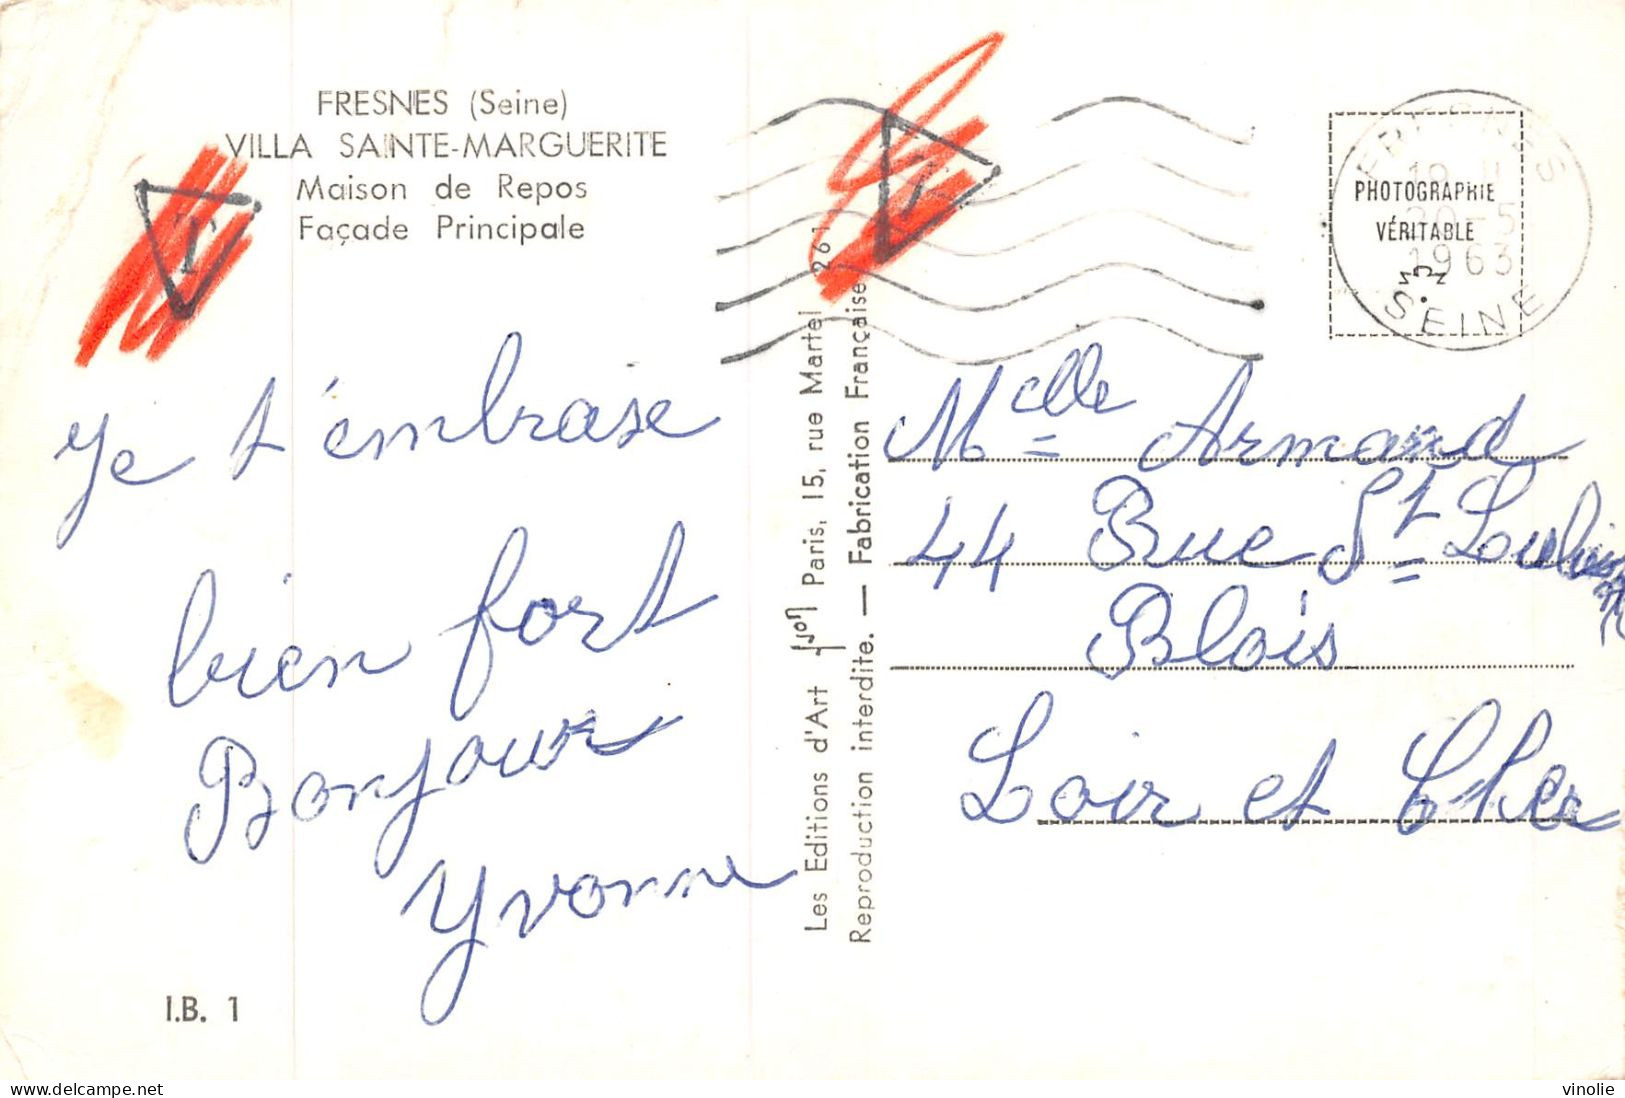 FRESNES (Seine)
VILLA SAINTE-MARGUERITE
Maison de Repos
Façade Principale
T
T
Je t'embrase
bien fort
Bonjour
Yvonne
I.B. 1
Les Editions d'Art Yvon Paris, 15, rue Martel 261
Reproduction interdite. — Fabrication Française
PHOTOGRAPHIE
VÉRITABLE
FRESNES
20-5
1963
SEINE
Melle Armand
44 Rue St Lubin
Blois
Loir et Cher
www.delcampe.net
vinolie